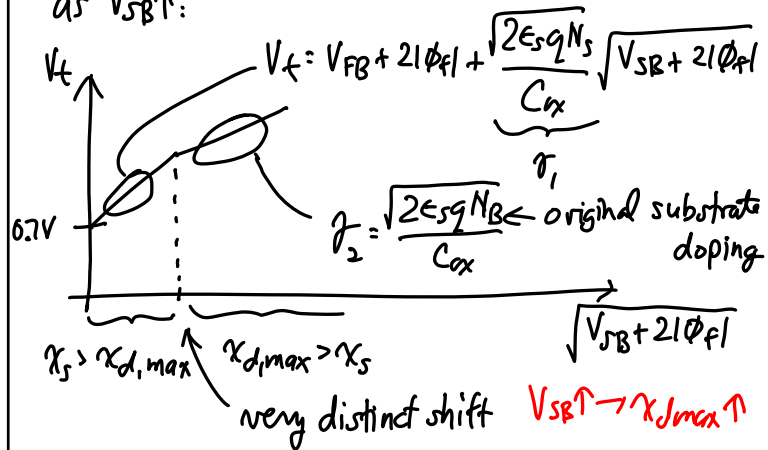 as V_SB↑:
V_t
V_t = V_FB + 2|ϕ_f| + √(2ϵ_s q N_s) / C_ox √(V_SB + 2|ϕ_f|)
γ_1
0.7V
γ_2 = √(2ϵ_s q N_B) / C_ox ← original substrate
doping
√(V_SB + 2|ϕ_f|)
x_s > x_d,max
x_d,max > x_s
very distinct shift
V_SB↑ → x_dmax↑